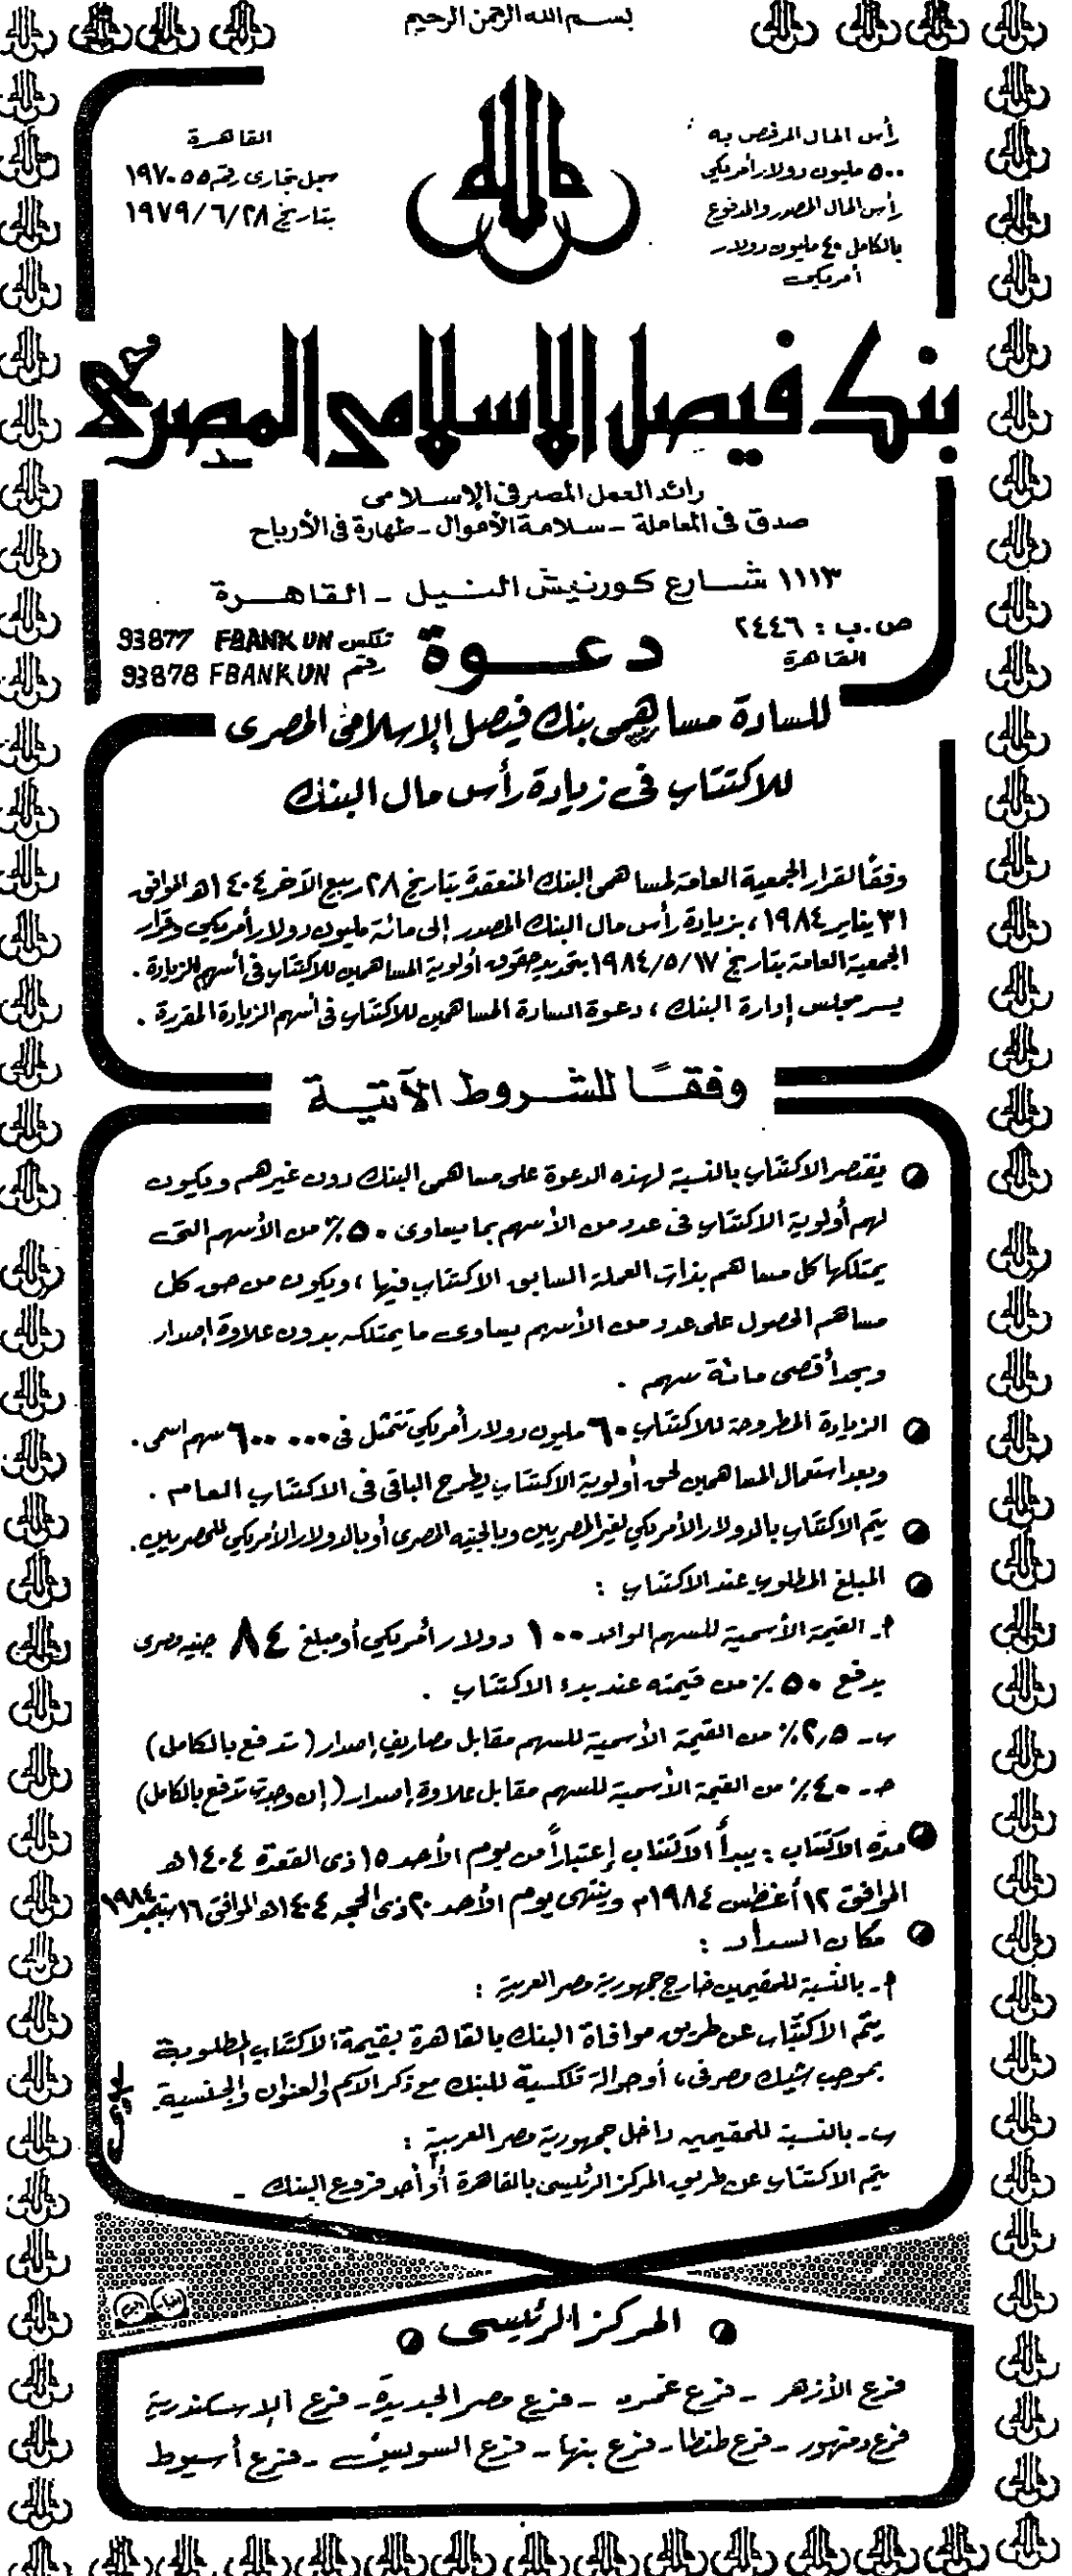 بسم الله الرحمن الرحيم
رأس المال المرخص به :
٥٠٠ مليون دولار أمريكي
رأس المال المصدر والمدفوع
بالكامل ٤٠ مليون دولار
أمريكي
القاهرة
سجل تجارى رقم ١٩٧٠٥٥
بتاريخ ١٩٧٩/٦/٢٨
الله
بنك فيصل الاسلامى المصرى
رائد العمل المصرفى الإسلامى
صدق فى المعاملة - سلامة الأموال - طهارة فى الأرباح
١١١٣ شارع كورنيش النيل - القاهرة
ص.ب : ٢٤٤٦
القاهرة
دعوة
تلكس 93877 FBANK UN
رقم 93878 FBANK UN
للسادة مساهمى بنك فيصل الإسلامى المصرى
للاكتتاب فى زيادة رأس مال البنك
وفقًا لقرار الجمعية العامة لمساهمى البنك المنعقدة بتاريخ ٢٨ ربيع الآخر ١٤٠٤هـ الموافق
٣١ يناير ١٩٨٤ ، بزيادة رأس مال البنك المصدر إلى مائة مليون دولار أمريكي وقرار
الجمعية العامة بتاريخ ١٩٨٤/٥/١٧ بتحديد حقوق أولوية المساهمين للاكتتاب فى أسهم الزيادة .
يسر مجلس إدارة البنك ، دعوة السادة المساهمين للاكتتاب فى أسهم الزيادة المقررة .
وفقًا للشروط الآتية
يقتصر الاكتتاب بالنسبة لهذه الدعوة على مساهمى البنك دون غيرهم ويكون
لهم أولوية الاكتتاب فى عدد من الأسهم بما يساوى ٥٠٪ من الأسهم التى
يمتلكها كل مساهم بذات العملة السابق الاكتتاب فيها ، ويكون من حق كل
مساهم الحصول على عدد من الأسهم يساوى ما يمتلكه بدون علاوة إصدار
وبحد أقصى مائة سهم .
الزيادة المطروحة للاكتتاب ٦٠ مليون دولار أمريكي تتمثل فى ٦٠٠٠٠٠ سهم اسمى .
وبعد استعمال المساهمين لحق أولوية الاكتتاب يطرح الباقى فى الاكتتاب العام .
يتم الاكتتاب بالدولار الأمريكي لغير المصريين وبالجنيه المصرى أو بالدولار الأمريكي للمصريين .
المبلغ المطلوب عند الاكتتاب :
أ - القيمة الأسمية للسهم الواحد ١٠٠ دولار أمريكي أو مبلغ ٨٤ جنيه مصرى
يدفع ٥٠٪ من قيمته عند بدء الاكتتاب .
ب - ٢,٥٪ من القيمة الأسمية للسهم مقابل مصاريف إصدار (تدفع بالكامل)
جـ - ٤٠٪ من القيمة الأسمية للسهم مقابل علاوة إصدار (إن وجدت تدفع بالكامل)
مدة الاكتتاب : يبدأ الاكتتاب إعتبارًا من يوم الأحد ١٥ ذى القعدة ١٤٠٤هـ
الموافق ١٢ أغسطس ١٩٨٤م وينتهى يوم الأحد ٢٠ ذى الحجه ١٤٠٤هـ الموافق ١٦ سبتمبر ١٩٨٤
مكان السداد :
أ - بالنسبة للمقيمين خارج جمهورية مصر العربية :
يتم الاكتتاب عن طريق موافاة البنك بالقاهرة بقيمة الاكتتاب المطلوبة
بموجب شيك مصرفى ، أو حوالة تلكسية للبنك مع ذكر الاسم والعنوان والجنسية .
ب - بالنسبة للمقيمين داخل جمهورية مصر العربية :
يتم الاكتتاب عن طريق المركز الرئيسى بالقاهرة أو أحد فروع البنك -
المركز الرئيسى
فرع الأزهر - فرع غمره - فرع مصر الجديدة - فرع الإسكندرية
فرع دمنهور - فرع طنطا - فرع بنها - فرع السويس - فرع أسيوط